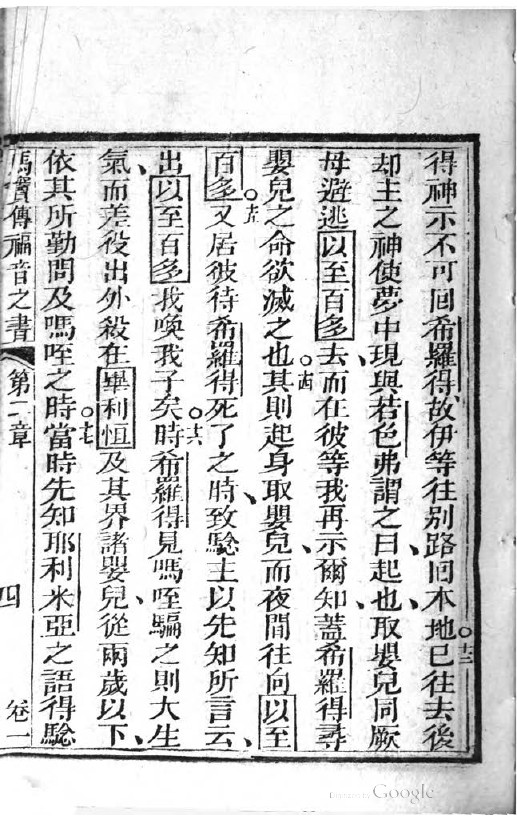 得神示不可回希羅得故伊等往別路回本地○十三已往去後
却主之神使夢中現與若色弗謂之曰起也取嬰兒同厥
母避逃以至百多去而在彼等我再示爾知蓋希羅得尋
嬰兒之命欲滅之也○十四其則起身取嬰兒而夜間往向以至
百多○十五又居彼待希羅得死了之時致騐主以先知所言云
出以至百多我喚我子矣○十六時希羅得見嗎咥騙之則大生
氣而差役出外殺在畢利恒及其界諸嬰兒從兩歲以下
依其所勤問及嗎咥之時○十七當時先知耶利米亞之語得騐
傳福音之書 第二章 四 卷一
Google